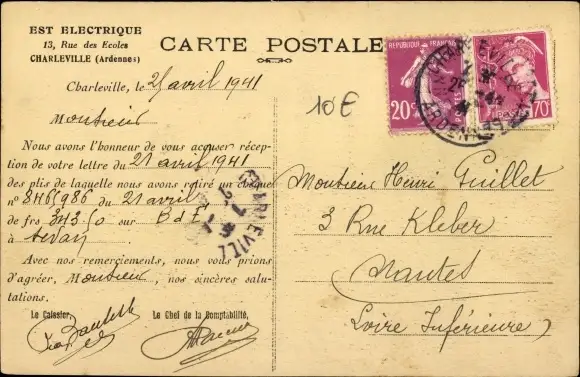 EST ELECTRIQUE
13, Rue des Ecoles
CHARLEVILLE (Ardennes)
CARTE POSTALE
Charleville, le 25 avril 1941
10 €
Monsieur
Nous avons l'honneur de vous accuser récep-
tion de votre lettre du 21 avril 1941
des plis de laquelle nous avons retiré un chèque
n° 8465986 du 21 avril
de frs 343,50 sur B d F
à
Avec nos remerciements, nous vous prions
d'agréer, Monsieur, nos sincères salu-
tations.
Le Caissier, Le Chef de la Comptabilité,
REPUBLIQUE FRANÇAISE
20
70
CHARLEVILLE
Monsieur Henri Guillet
3 Rue Kleber
Nantes
Loire Inférieure